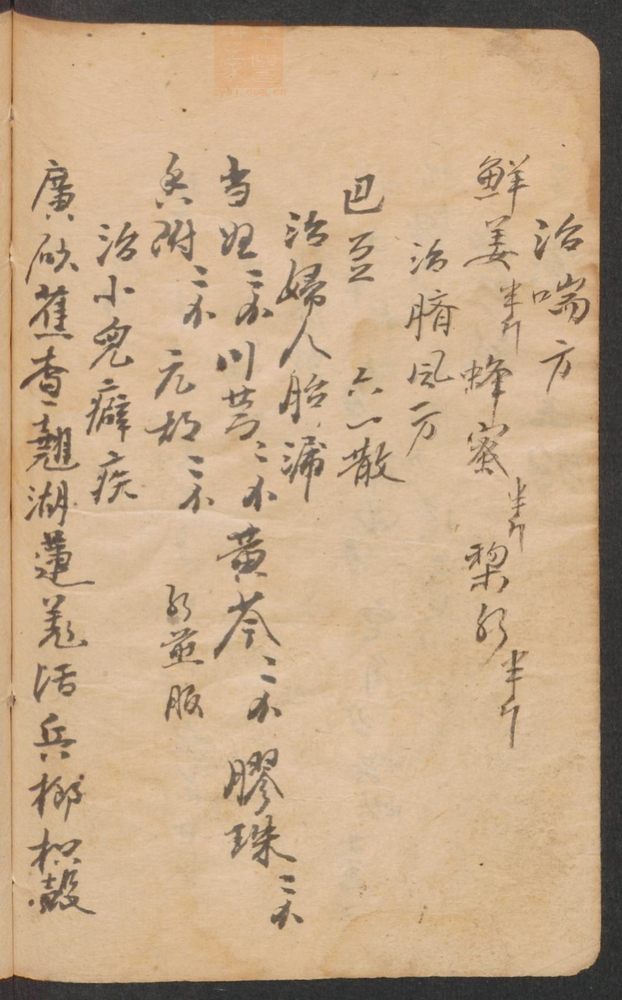 治喘方
鮮姜半斤 蜂蜜半斤 梨水半斤
治臍風方
巴豆 六一散
治婦人胎漏
当归二不 川芎二不 黄芩二不 膠珠二不
香附二不 元胡二不 水並服
治小兒癖疾
廣砍蕉查翹湖蓮羗活兵榔枳殼